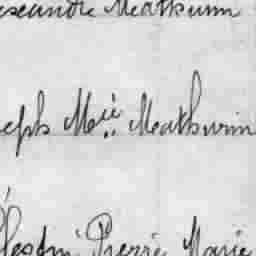 exandre Mathurin
seph M.ie Mathurin
lestin Pierre Marie